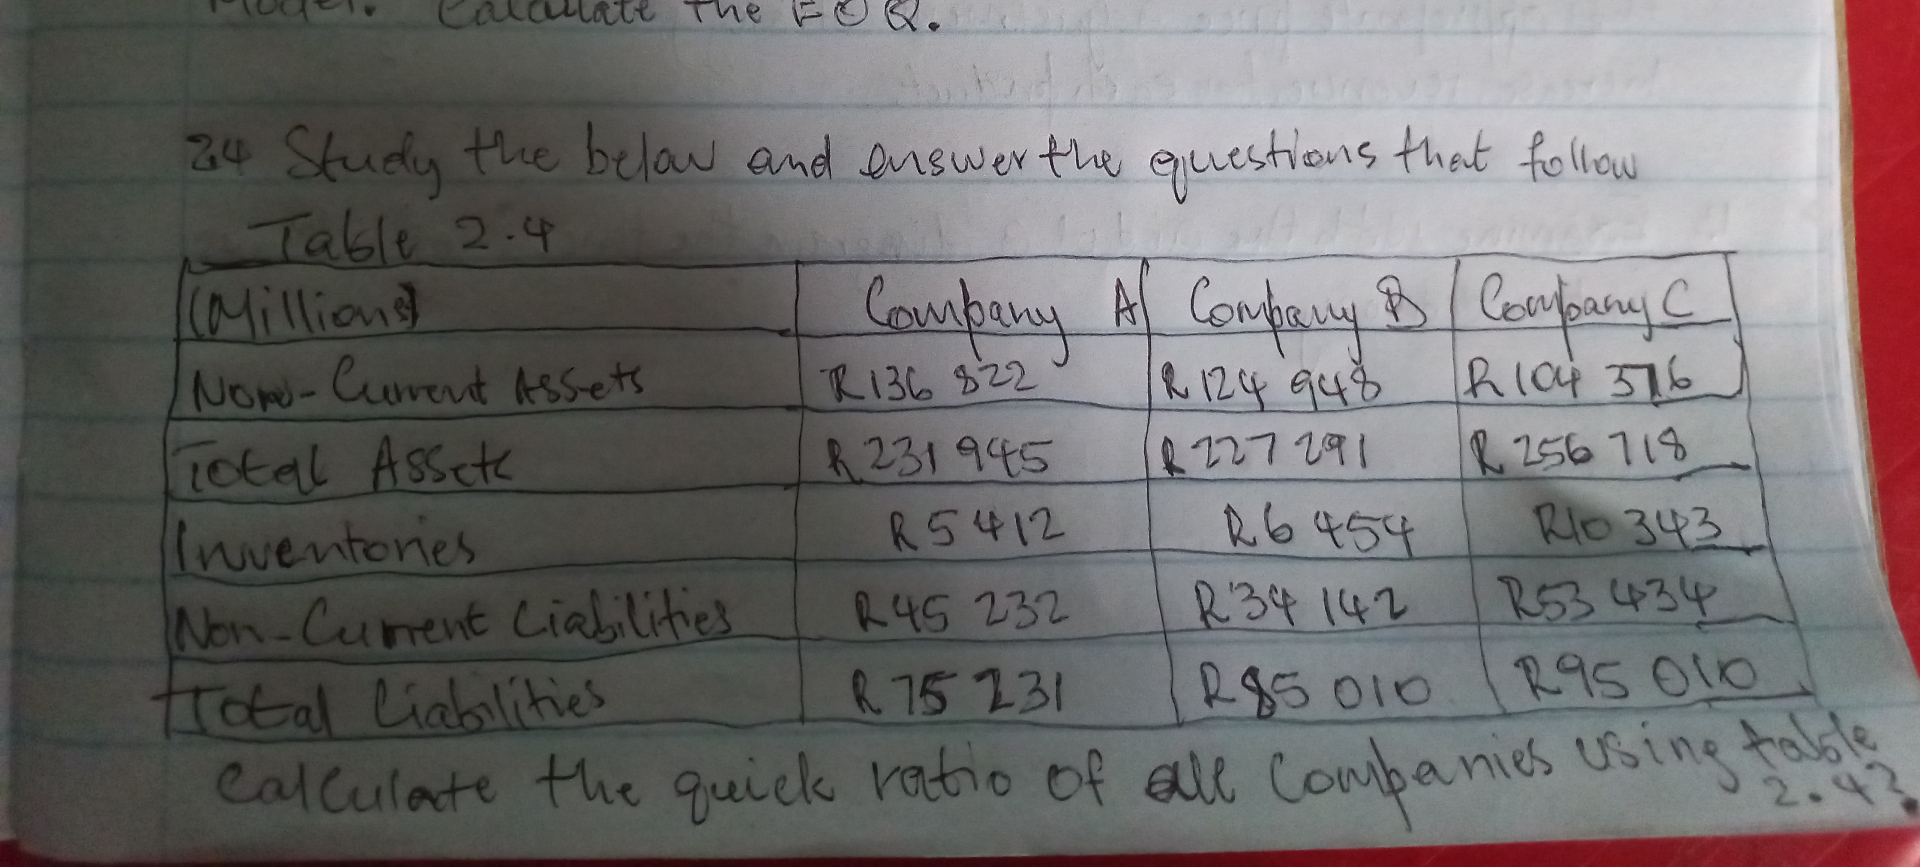 Model. Calculate the EOQ.
24 Study the below and answer the questions that follow
Table 2.4
(Millions) Company A Company B Company C
Non-Current Assets R136 822 R124 948 R104 316
Total Assets R231 945 R227 291 R256 718
Inventories R5 412 R6 454 R10 343
Non-Current Liabilities R45 232 R34 142 R53 434
Total Liabilities R75 231 R85 010 R95 010
Calculate the quick ratio of all Companies using table
2.4?